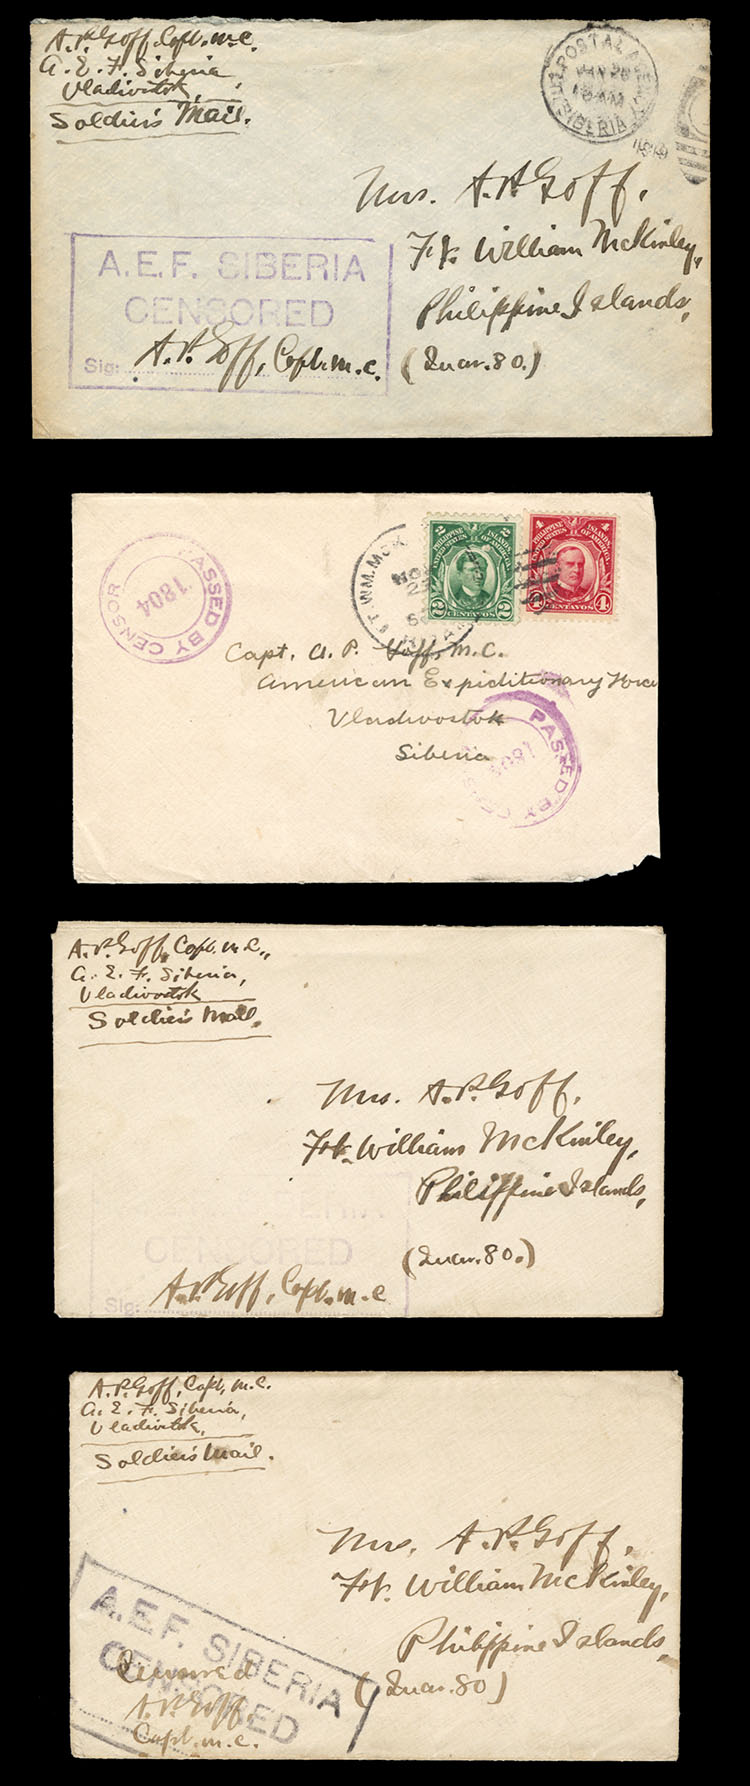 A.P. Goff, Capt. M.C.
A. E. F. Siberia
Vladivostok,
Soldier's Mail.
U.S. POSTAL AGENCY
JAN 26
AM
SIBERIA
1919
Mrs. A. P. Goff,
Ft. William McKinley,
Philippine Islands,
(Quar. 80.)
A.E.F. SIBERIA
CENSORED
Sig: A. P. Goff, Capt. M.C.
PASSED BY CENSOR
1804
FT. WM. MCK
2 PHILIPPINE ISLANDS
UNITED STATES OF AMERICA
2 CENTAVOS 2
4 PHILIPPINE ISLANDS 4
UNITED STATES OF AMERICA
4 CENTAVOS 4
Capt. A. P. Goff, M.C.
American Expiditionary Force
Vladivostok
Siberia
PASSED BY CENSOR
1804
A. P. Goff, Capt. M.C.,
A. E. F. Siberia,
Vladivostok
Soldier's Mail.
Mrs. A. P. Goff,
Ft. William McKinley,
Philippine Islands,
(Quar. 80.)
SIBERIA
CENSORED
Sig:
A. P. Goff, Capt. M.C.
A. P. Goff, Capt, M.C.
A. E. F. Siberia,
Vladivostok,
Soldier's Mail.
Mrs. A. P. Goff,
Ft. William McKinley,
Philippine Islands,
(Quar. 80)
A.E.F. SIBERIA
CENSORED
Censored
A. P. Goff,
Capt. M.C.